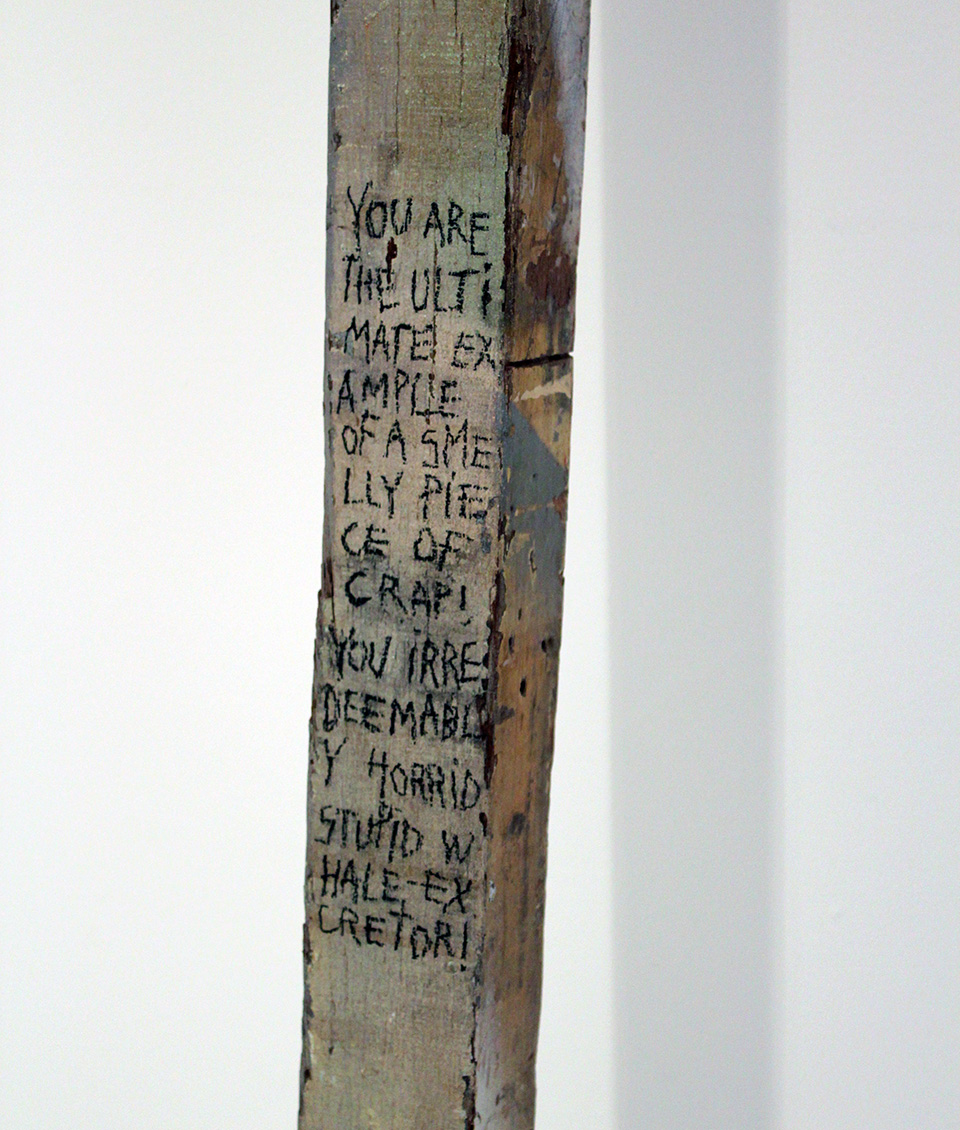 YOU ARE
THE ULTi
MATE EX
AMPLE
OF A SME
LLY PiE
CE OF
CRAP!
YOU iRRE
DEEMABL
Y HORRiD
STUPiD W
HALE-EX
CRETOR!